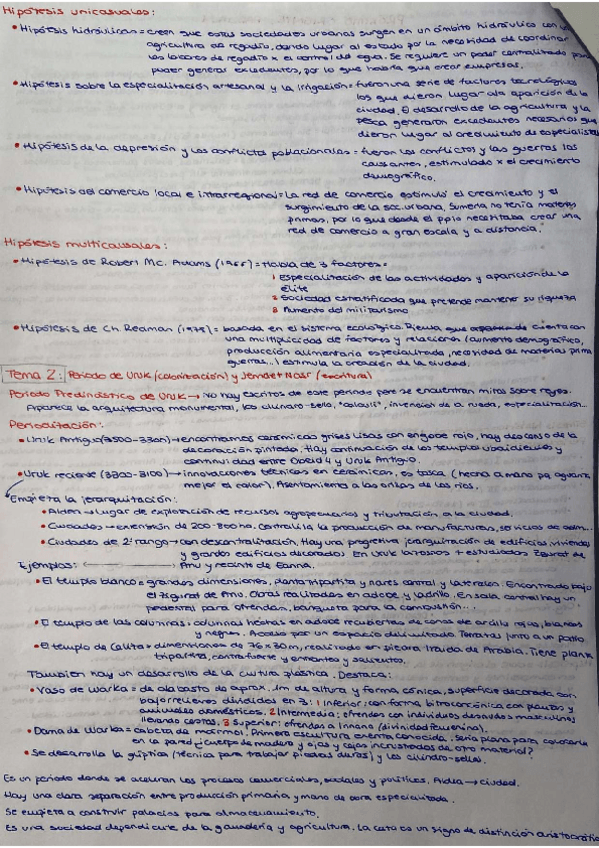 Hipótesis unicausales:
• Hipótesis hidráulicas = creen que estas sociedades urbanas surgen en un ámbito hidráulico con
agricultura de regadío, dando lugar al estado por la necesidad de coordinar
las labores de regadío x el control del agua. Se requiere un poder centralizado para
poder generar excedentes, por lo que habría que crear empresas.
• Hipótesis sobre la especialización artesanal y la irrigación = fueron una serie de factores tecnológicos
los que dieron lugar a la aparición de la
ciudad. El desarrollo de la agricultura y la
pesca generaron excedentes necesarios que
dieron lugar al crecimiento de especialistas
• Hipótesis de la depresión y los conflictos poblacionales = fueron los conflictos y las guerras los
causantes, estimulado x el crecimiento
demográfico.
• Hipótesis del comercio local e intrarregional = La red de comercio estimuló el crecimiento y el
surgimiento de la soc. urbana, Sumeria no tenía materias
primas, por lo que desde el ppio necesitaba crear una
red de comercio a gran escala y a distancia.
Hipótesis multicausales:
• Hipótesis de Robert Mc. Adams (1966) = Habla de 3 factores =
1 Especialización de las actividades y aparición de la
élite
2 Sociedad estratificada que pretende mantener su riqueza
3 Aumento del militarismo
• Hipótesis de Ch. Redman (1978) = basada en el sistema ecológico. Piensa que cuenta con
una multiplicidad de factores y relaciones (aumento demográfico,
producción alimentaria especializada, necesidad de materias prima
guerras...) estimula la creación de la ciudad.
Tema 2: Periodo de Uruk (colonización) y Jemdet Nasr (escritura)
Periodo Predinástico de Uruk → No hay escritos de este periodo pero se encuentran mitos sobre reyes.
Aparece la arquitectura monumental, los cilindro-sello, "calculi", invención de la rueda, especialización...
Periodización:
• Uruk Antiguo (3500-3300) → encontramos cerámicas grises lisas con engobe rojo, hay descenso de la
decoración pintada. Hay continuación de los templos ubaidienses y
continuidad entre Obeid 4 y Uruk Antiguo.
• Uruk reciente (3300-3100) → innovaciones técnicas en cerámicas, es tosca (hecha a mano pq aguanta
mejor el calor). Asentamiento a las orillas de los ríos.
Empieza la jerarquización:
• Aldea → lugar de explotación de recursos agropecuarios y tributación a la ciudad.
• Ciudades → extensión de 200-800ha. Centraliza la producción de manufacturas, servicios de adm...
• Ciudades de 2º rango → con descentralización. Hay una progresiva jerarquización de edificios viviendas
y grandes edificios decorados. En Uruk las zonas + estudiadas
Ejemplos: Anu y recinto de Eanna.
• El templo blanco = grandes dimensiones, planta tripartita y naves central y laterales. Encontrado bajo
el zigurat de Anu. Obras realizadas en adobe y ladrillo. En sala central hay un
pedestal para ofrendas, banqueta para la combustión...
• El templo de las columnas = columnas hechas en adobe recubiertas de conos de arcilla rojos, blancos
y negros. Acceso por un espacio delimitado. Terrazas junto a un patio
• El templo de Caliza = dimensiones de 76x30m, realizado en piedra traída de Arabia. Tiene planta
tripartita, contrafuerte y entrantes y salientes.
También hay un desarrollo de la cultura plástica. Destaca:
• Vaso de Warka = de alabastro de aprox. 1m de altura y forma cónica, superficie decorada con
bajorrelieves divididos en 3: 1 Inferior: con forma bitroncocónica con plantas y
animales domésticos. 2 Intermedia: ofrendas con individuos desnudos masculinos
llevando cestos. 3 Superior: ofrendas a Innana (divinidad femenina).
• Dama de Warka = cabeza de mármol. Primera escultura exenta conocida, sería plana para colocarla
en la pared ¿cuerpo de madera y ojos y cejas incrustados de otro material?
• Se desarrolla la glíptica (técnica para trabajar piedras duras) y los cilindro-sellos.
Es un periodo donde se aceleran los procesos comerciales, sociales y políticos. Aldea → ciudad.
Hay una clara separación entre producción primaria y mano de obra especializada.
Se empieza a construir palacios para almacenamiento.
Es una sociedad dependiente de la ganadería y agricultura. La caza es un signo de distinción aristocrático